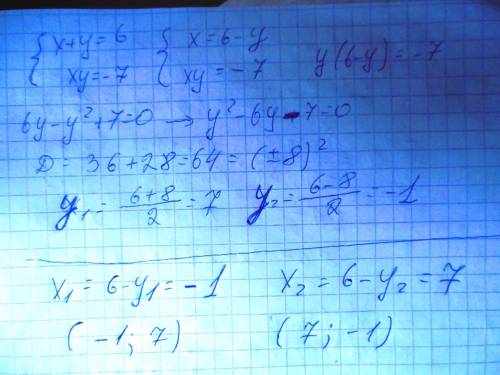 { x+y=6 { x=6-y y(6-y)=-7
{ xy=-7 { xy=-7
6y-y²+7=0 → y²-6y-7=0
D = 36+28=64=(±8)²
y₁= (6+8)/2 = 7 y₂= (6-8)/2 = -1
x₁=6-y₁=-1 x₂=6-y₂=7
(-1; 7) (7; -1)